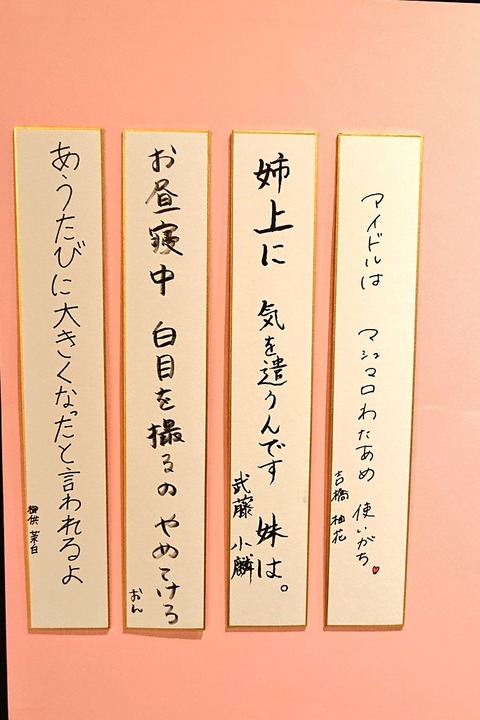 アイドルは マシュマロわたあめ 使いがち♥
吉橋 柚花
姉上に 気を遣うんです 妹は。
武藤 小麟
お昼寝中 白目を撮るの やめてける
おん
あうたびに大きくなったと言われるよ
御供 茉白